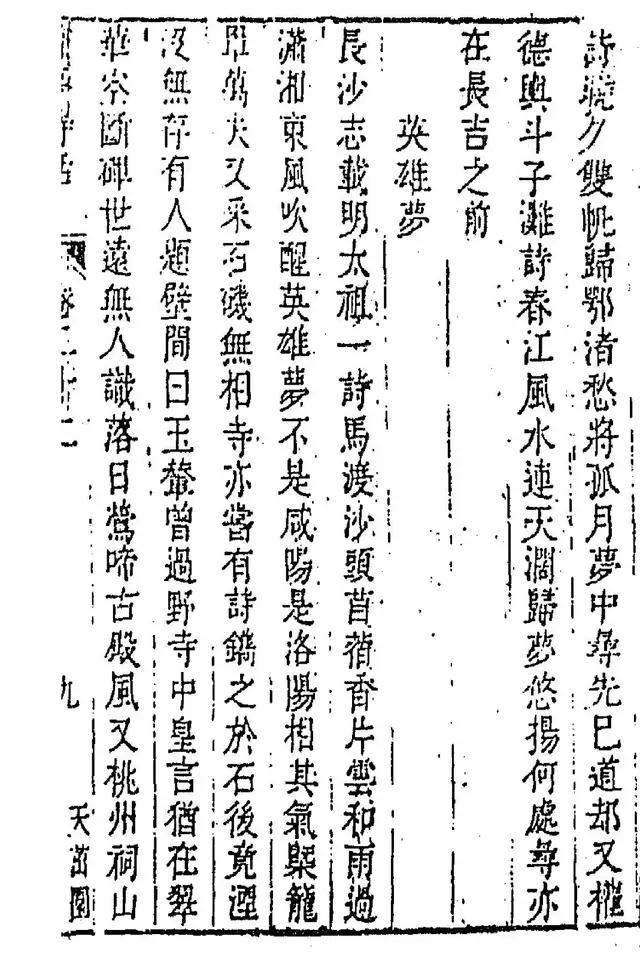 詩曉夕雙帆歸鄂渚愁將孤月夢中尋先已道却又權
德輿斗子灘詩春江風水連天濶歸夢悠揚何處尋亦
在長吉之前
英雄夢
長沙志載明太祖一詩馬渡沙頭苜蓿香片雲和雨過
瀟湘東風吹醒英雄夢不是咸陽是洛陽相其氣槩籠
罩萬夫又采石磯無相寺亦嘗有詩鐫之於石後竟湮
沒無存有人題壁間曰玉輦曾過野寺中皇言猶在翠
華空斷碑世遠無人識落日鶯啼古殿風又桃州祠山
詩話
卷二十二
九
天茁園